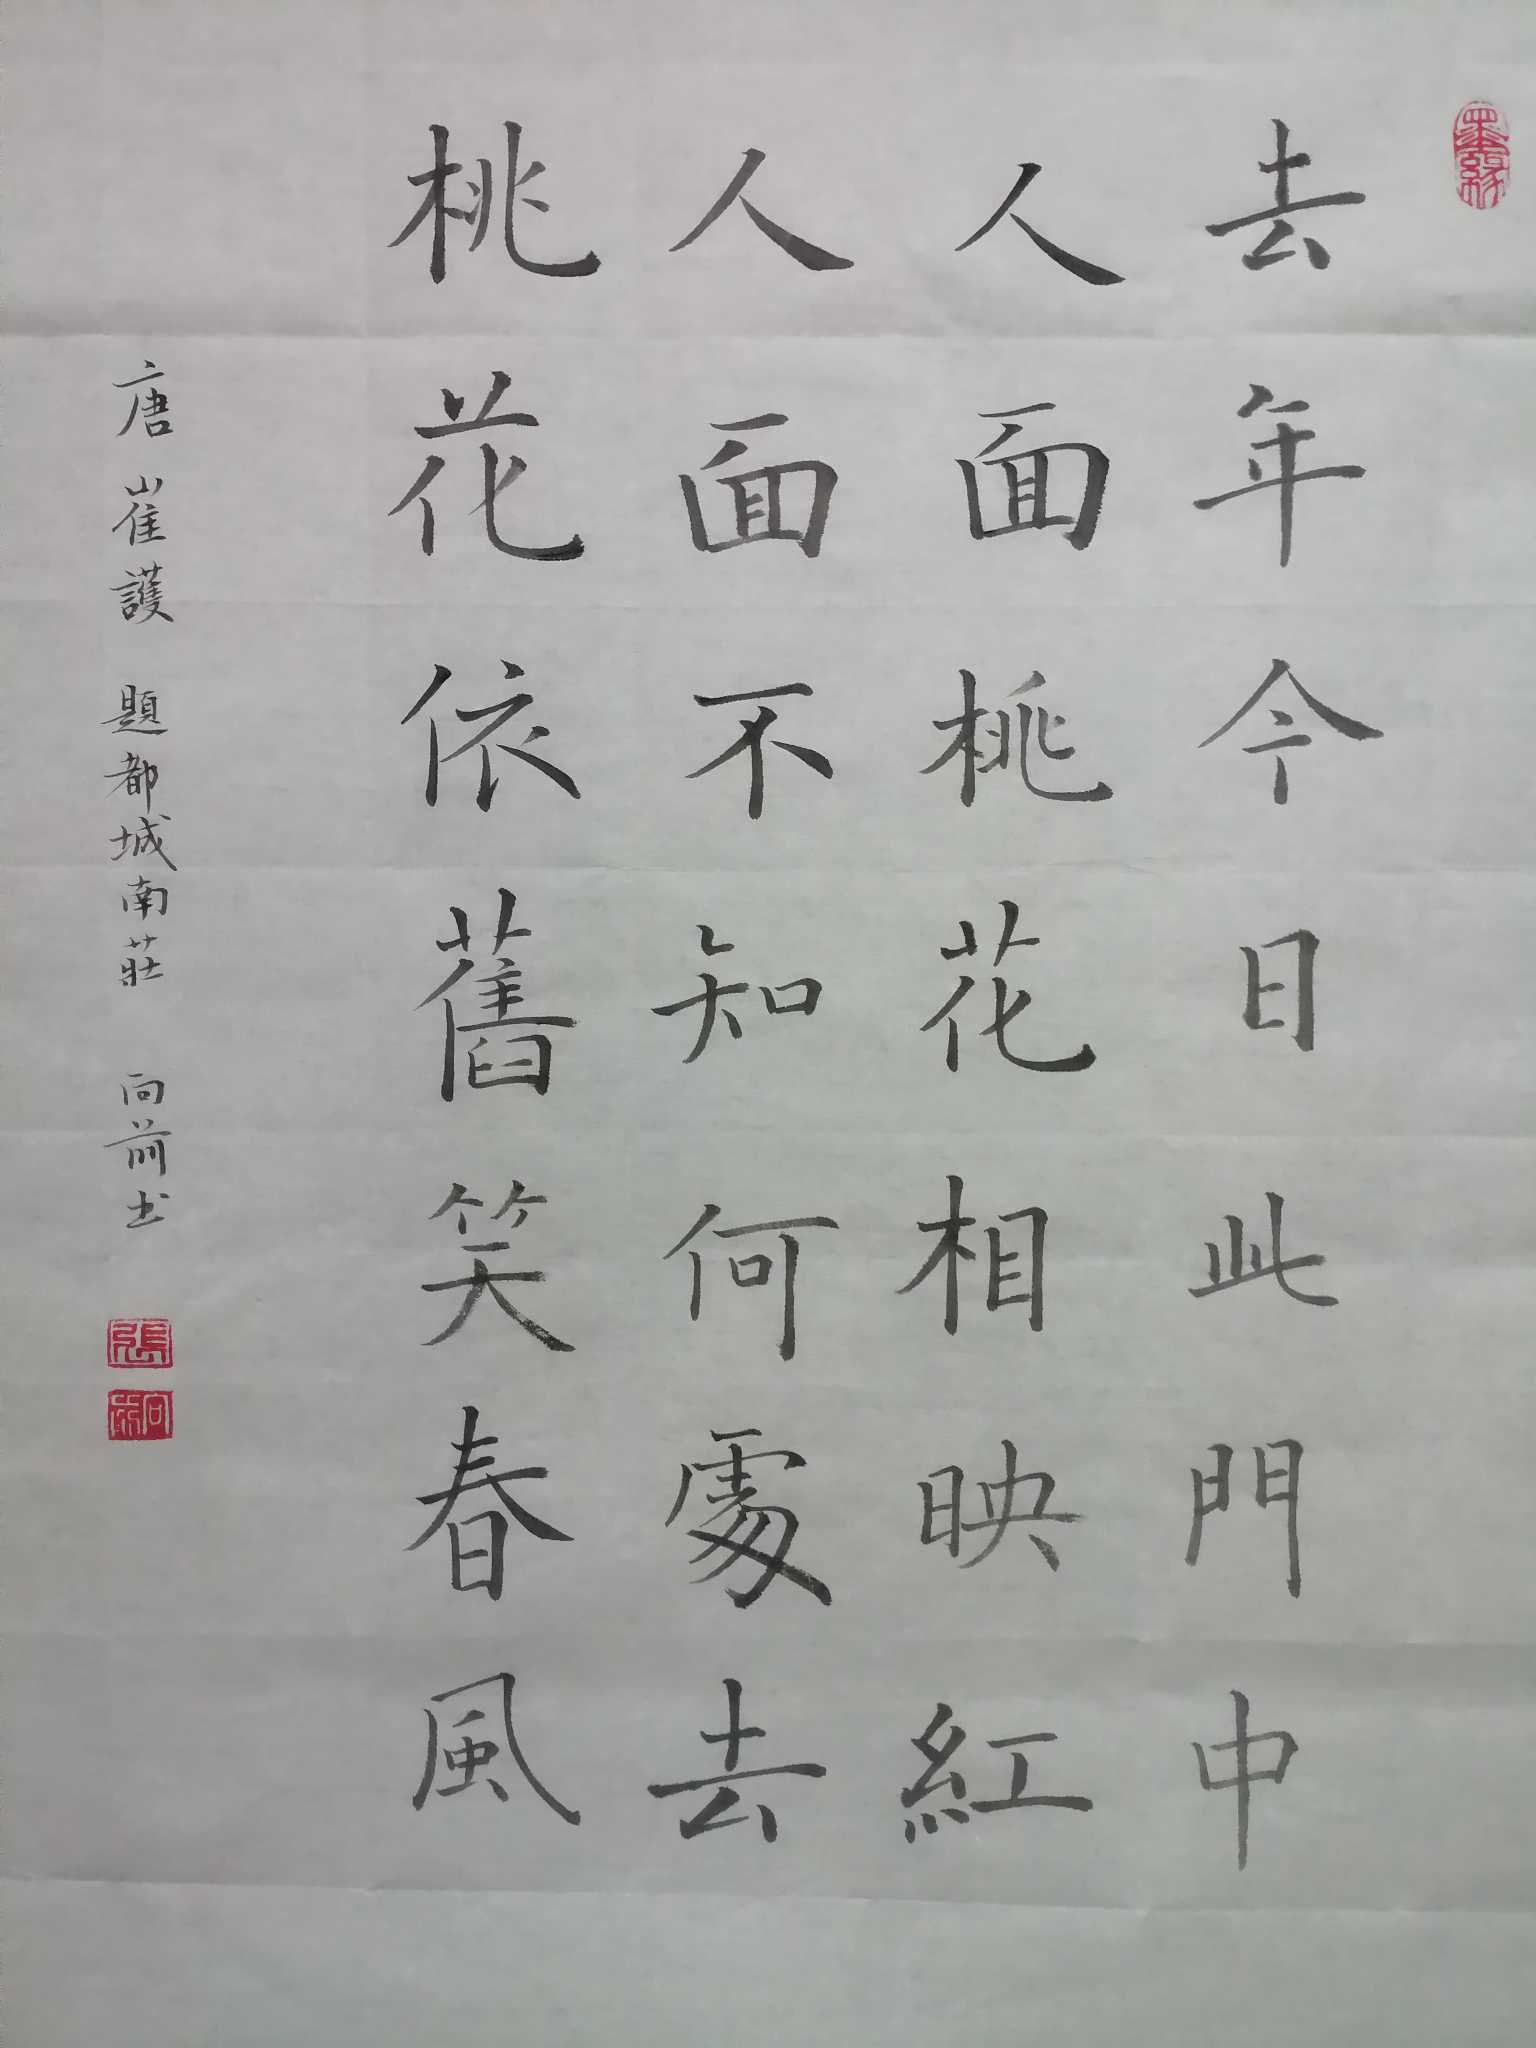 墨緣
去年今日此門中
人面桃花相映紅
人面不知何處去
桃花依舊笑春風
唐崔護 題都城南莊 向前书
張
向前